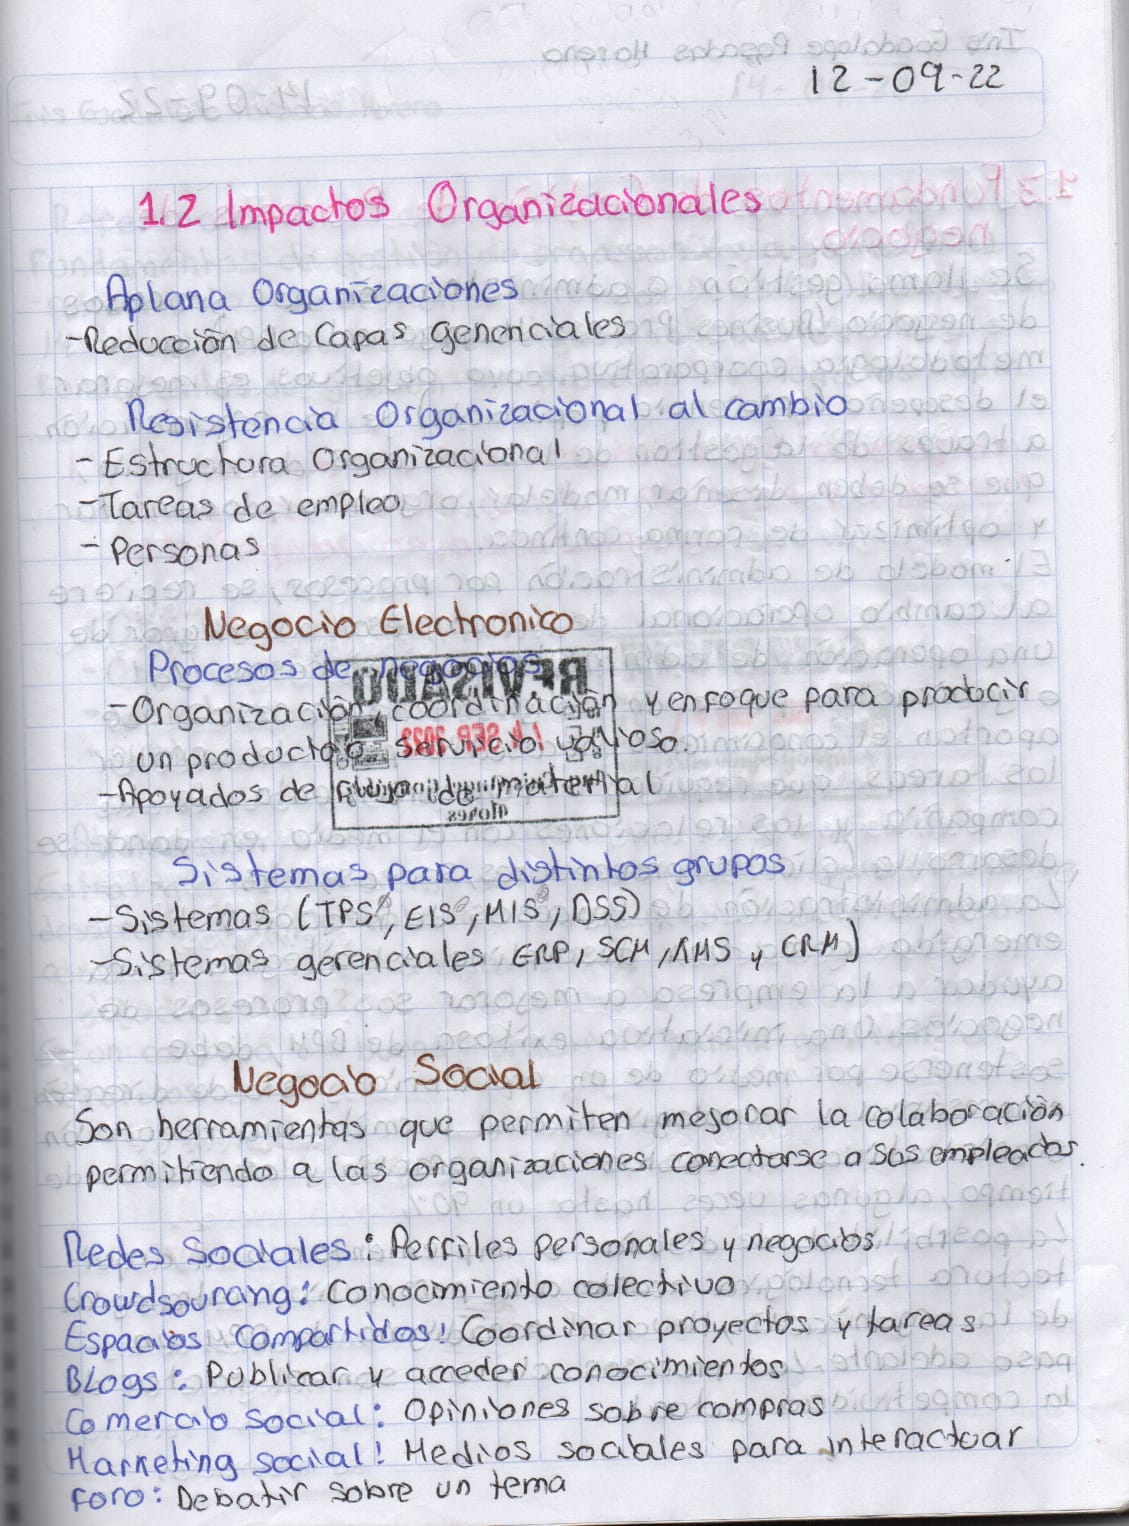 12-09-22
1.2 Impactos Organizacionales
Aplana Organizaciones
-Reducción de Capas genenciales
Resistencia Organizacional al cambio
- Estructura Organizacional
-Tareas de empleo
- Personas
Negocio Electronico
Procesos de negocios
-Organización, coordinación y enfoque para producir
un producto o servicio valioso.
-Apoyados de flujo de material
Sistemas para distintos grupos
-Sistemas (TPS, EIS, MIS, DSS)
-Sistemas gerenciales ERP, SCM, KMS y CRM)
Negocio Social
Son herramientas que permiten mejorar la colaboración
permitiendo a las organizaciones conectarse a sus empleados.
Redes Sociales: Perfiles personales y negocios
Crowdsourcing: Conocimiento colectivo
Espacios Compartidos: Coordinar proyectos y tareas
Blogs: Publicar y acceder conocimientos
Comercio social: Opiniones sobre compras
Marketing social: Medios sociales para interactuar
Foro: Debatir sobre un tema